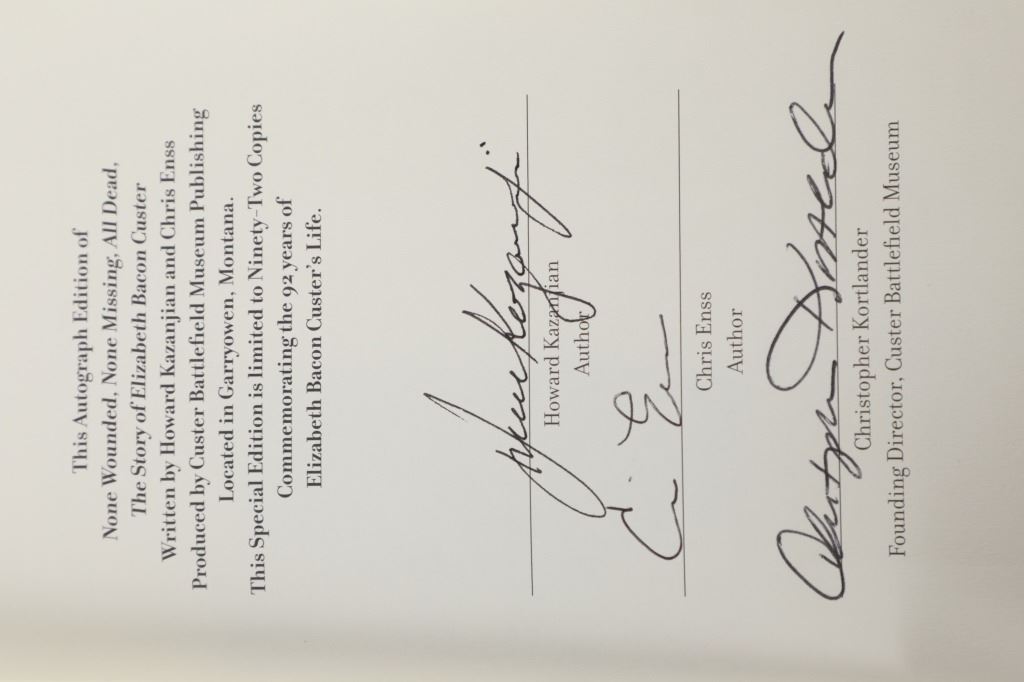 This Autograph Edition of
None Wounded, None Missing, All Dead,
The Story of Elizabeth Bacon Custer
Written by Howard Kazanjian and Chris Enss
Produced by Custer Battlefield Museum Publishing
Located in Garryowen, Montana.
This Special Edition is limited to Ninety-Two Copies
Commemorating the 92 years of
Elizabeth Bacon Custer's Life.
Howard Kazanjian
Author
Chris Enss
Author
Christopher Kortlander
Founding Director, Custer Battlefield Museum